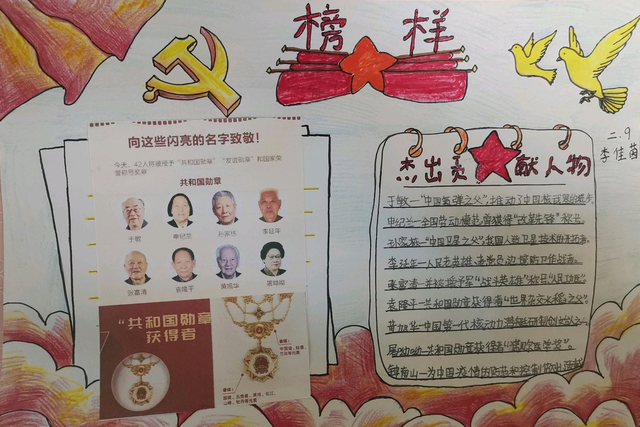 榜样
二.9
李佳茵
向这些闪亮的名字致敬！
今天，42人将被授予“共和国勋章”“友谊勋章”和国家荣
誉称号奖章
共和国勋章
于敏 申纪兰 孙家栋 李延年
张富清 袁隆平 黄旭华 屠呦呦
“共和国勋章
获得者
杰出贡献人物
于敏—“中国氢弹之父”推动了中国核武器的
申纪兰—全国劳动模范曾获得“改革先锋”称号。
孙家栋—“中国卫星之父”我国人造卫星技术的开拓者。
李延年—人民志愿
张富清—并被授予军“战斗英雄”称号
袁隆平—共和国勋章获得者“世界杂交水稻之父”
黄旭华—中国第一代核动力潜艇研制创始人之一
屠呦呦—共和国勋章获得者“诺贝尔医学奖”。
钟南山—为中国疫情的防范和控制做出